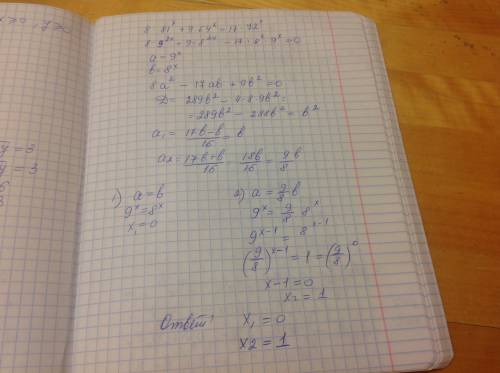 8·81^x + 9·64^x = 17·72^x
8·9^2x + 9·8^2x − 17·8^x·9^x = 0
a = 9^x
b = 8^x
8a² − 17ab + 9b² = 0
D = 289b² − 4·8·9b² =
= 289b² − 288b² = b²
a₁ = (17b − b)/16 = b
a₂ = (17b + b)/16 = 18b/16 = 9b/8
1) a = b
9^x = 8^x
x₁ = 0
2) a = 9/8 b
9^x = 9/8 · 8^x
9^x−1 = 8^x−1
(9/8)^x−1 = 1 = (9/8)^0
x − 1 = 0
x₂ = 1
Ответ:
x₁ = 0
x2 = 1
y = 3
y = 3